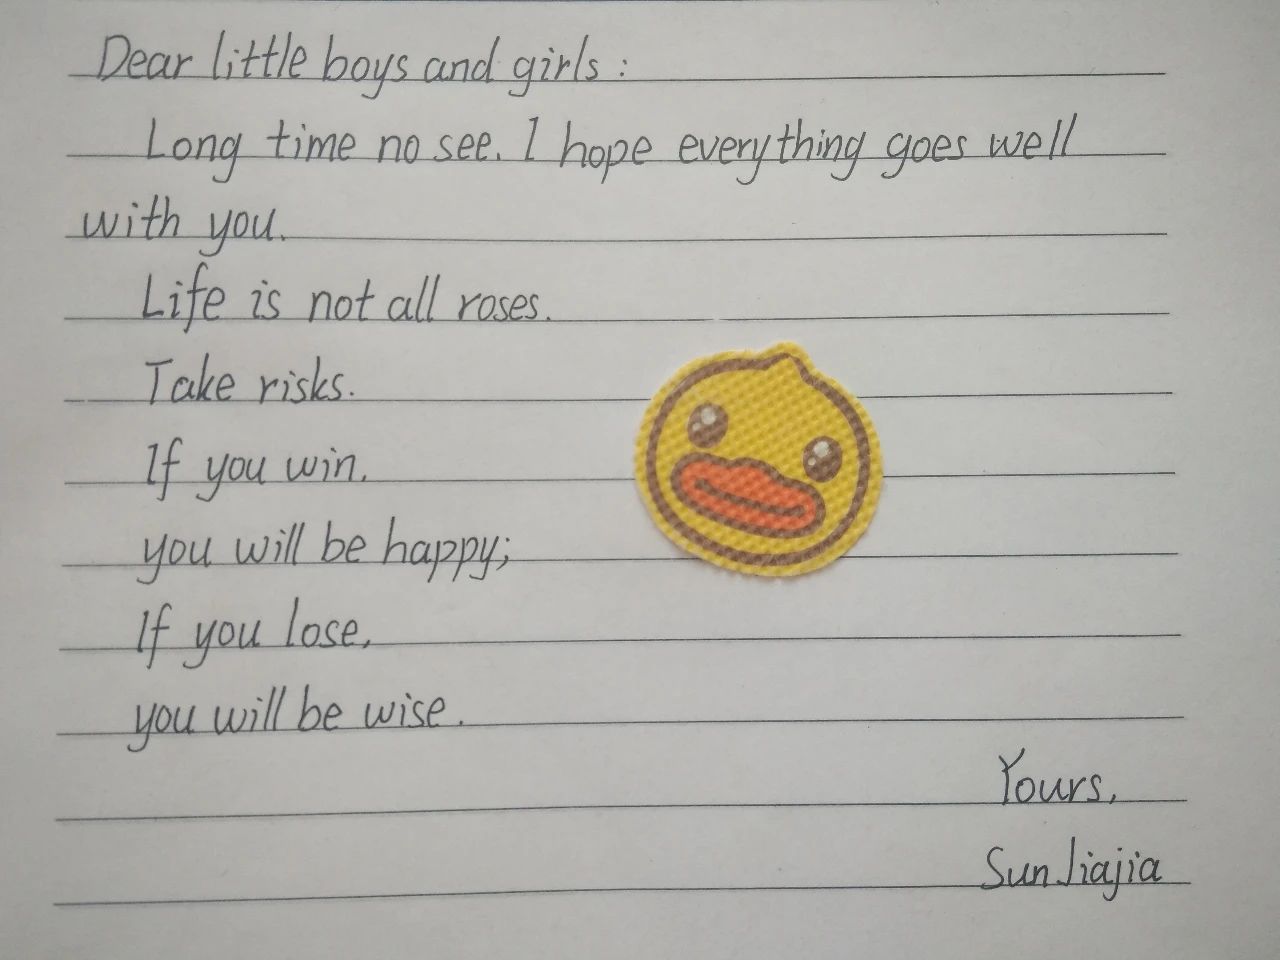 Dear little boys and girls:
Long time no see. I hope everything goes well
with you.
Life is not all roses.
Take risks.
If you win,
you will be happy;
If you lose,
you will be wise.
Yours,
Sun Jiajia